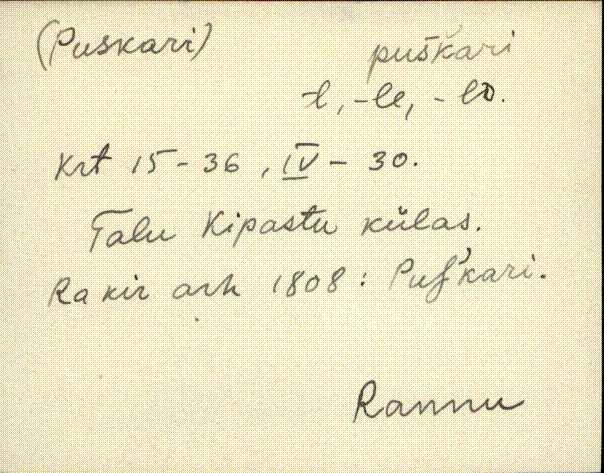 (Puskari) puškari
-l, -le, -lᴅ.
Krt 15-36, IV - 30.
Talu Kipastu külas.
Ra kir arh 1808: Puſ'kari.
Rannu